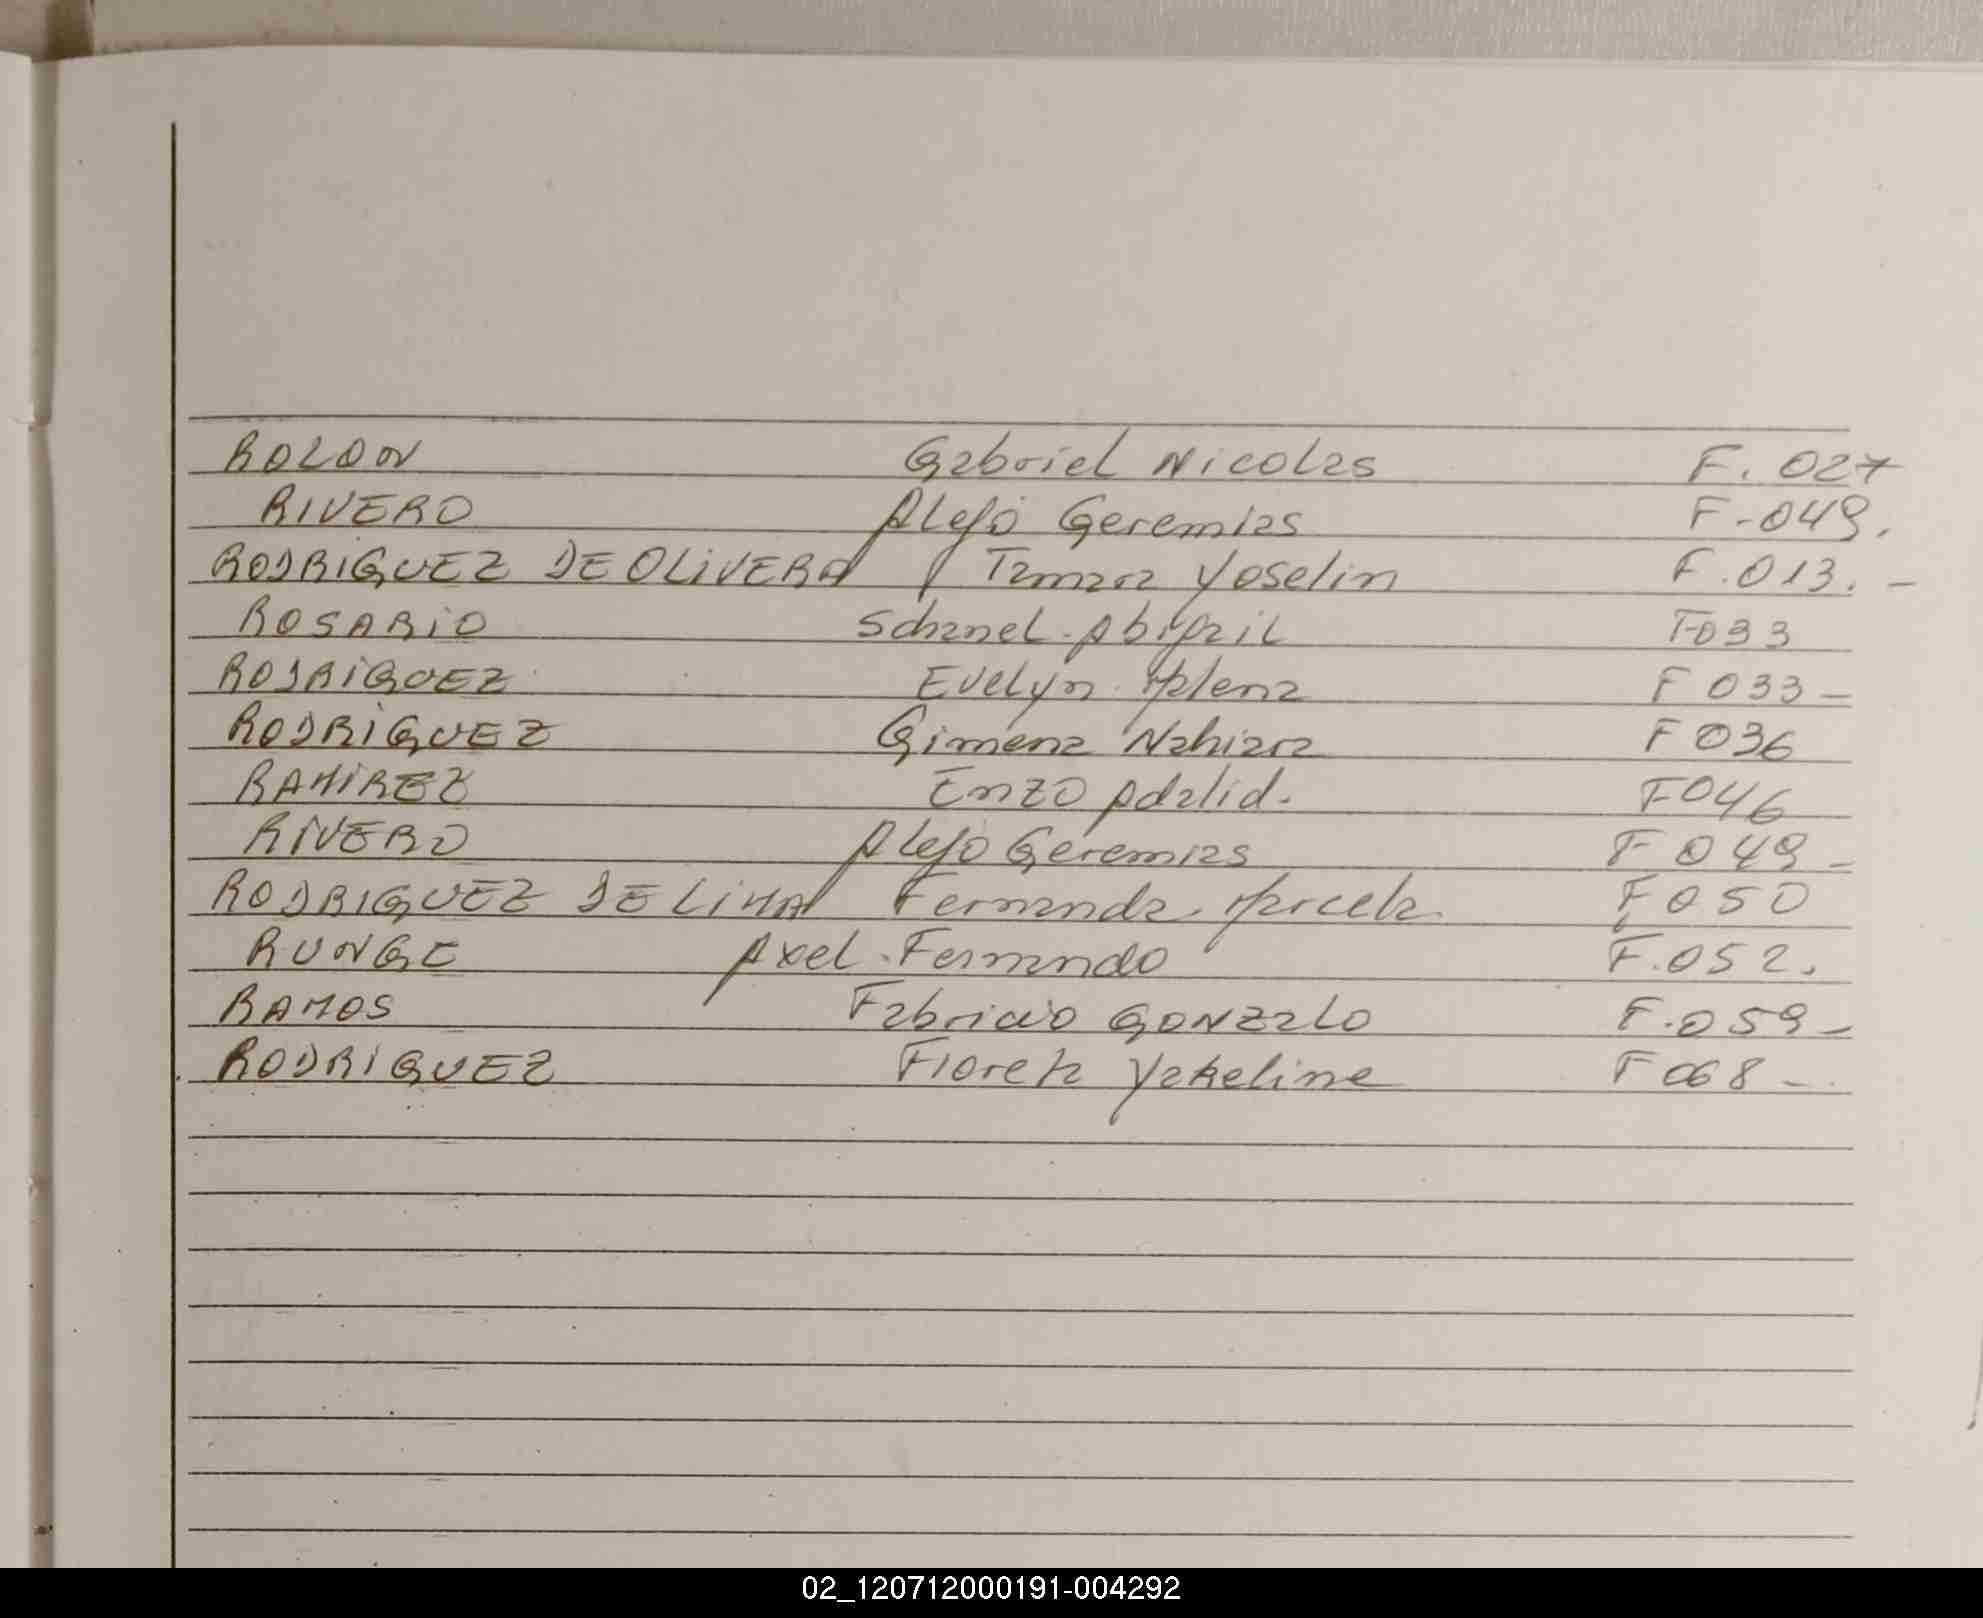 ROLON Gabriel Nicolas F. 027
RIVERO Alejo Geremias F-049.
RODRIGUEZ DE OLIVERA Tamara Yoselin F.013.-
ROSARIO Schanel Abigail F033
RODRIGUEZ Evelyn Malena F 033-
RODRIGUEZ Gimena Nahiara F 036
RAMIREZ Enzo Adalid. F046
RIVERO Alejo Geremias F 049-
RODRIGUEZ DE LIMA Fernanda Marcela F 050
RUNGE Axel Fernando F.052.
RAMOS Fabricio GONZalo F.059-
RODRIGUEZ Fiorela Yakeline F 068-
02_120712000191-004292